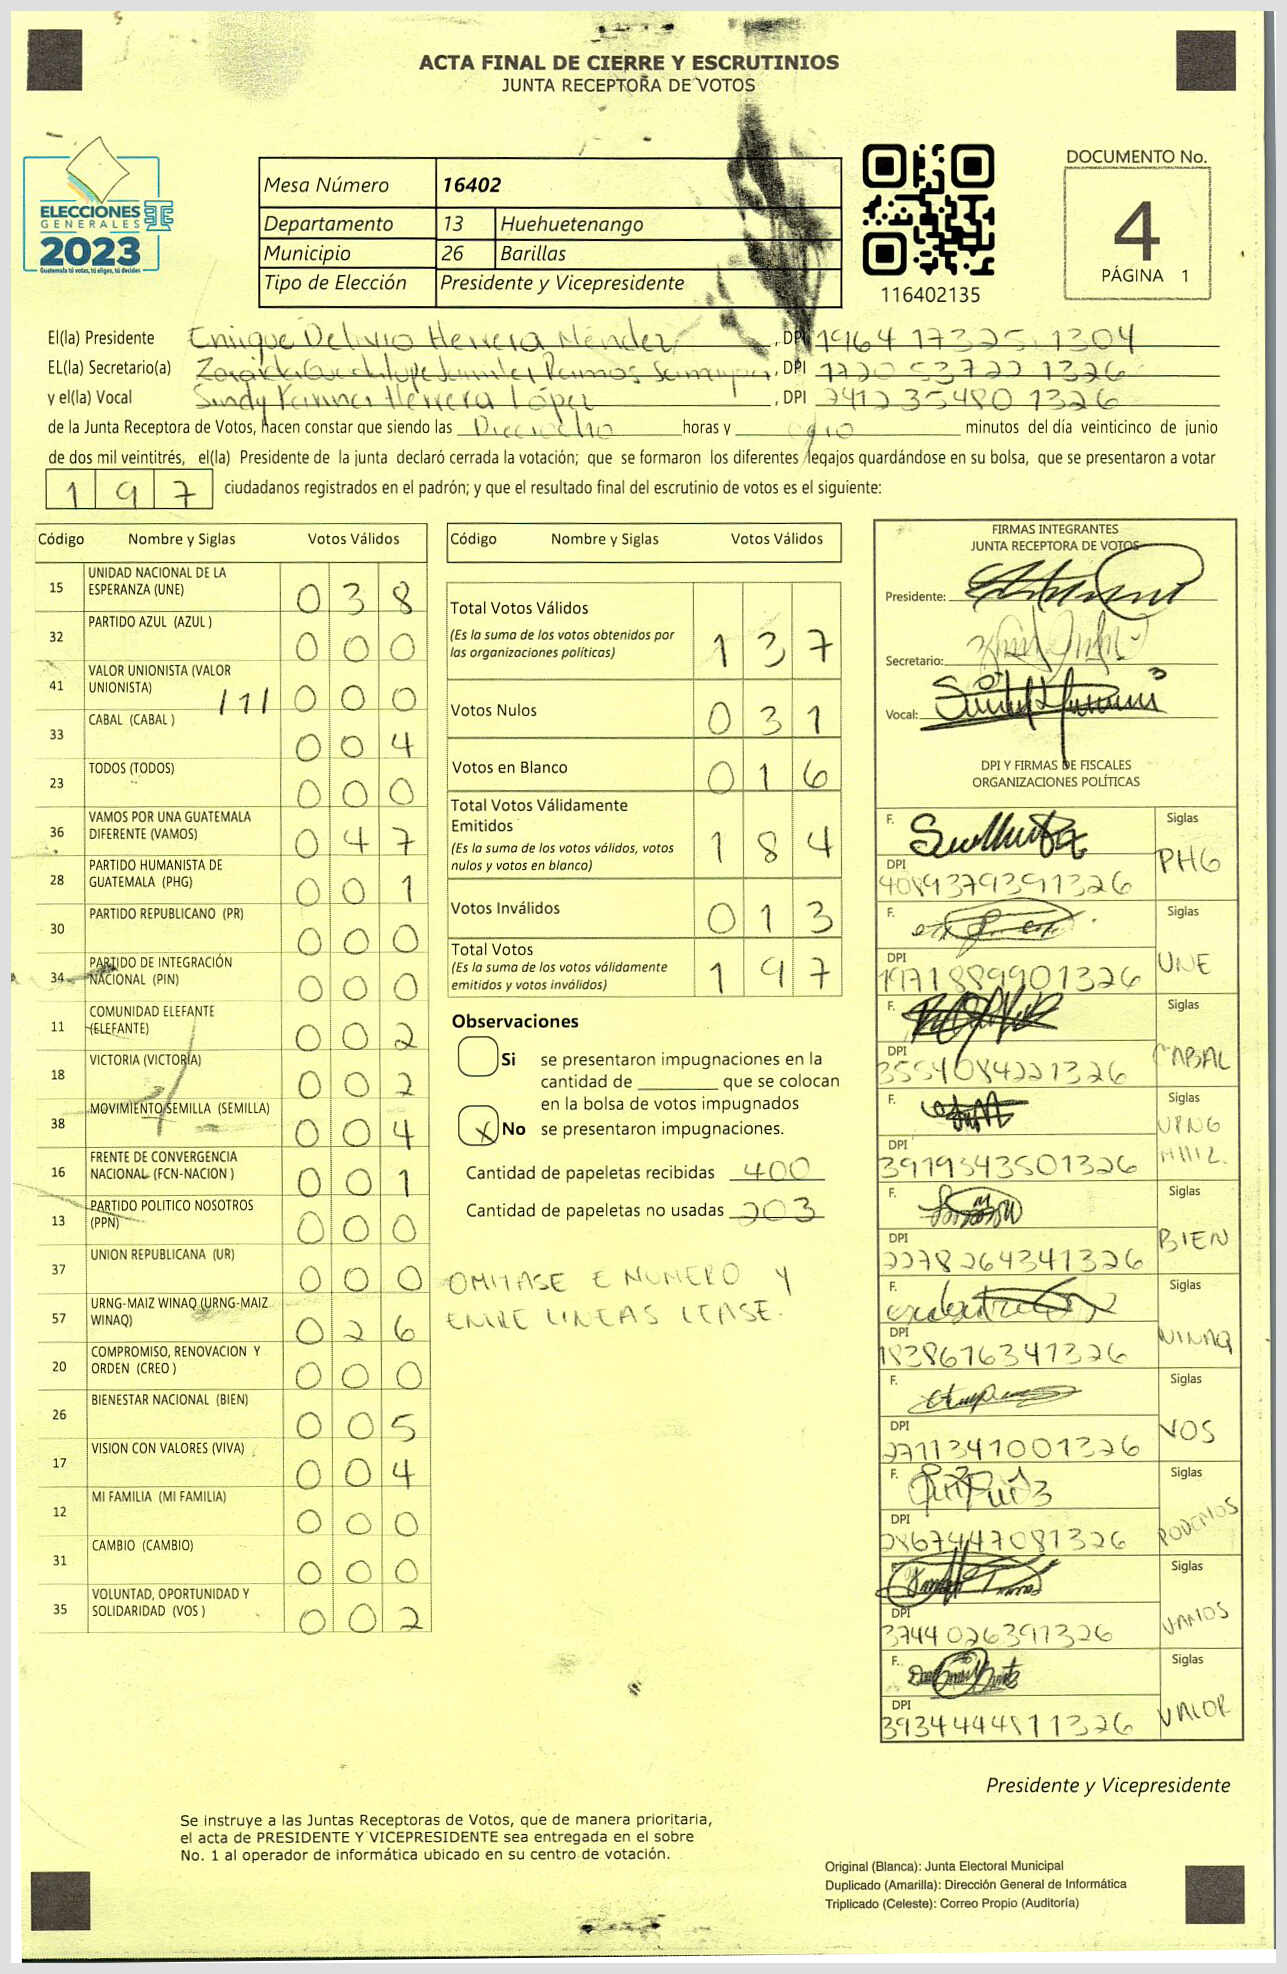 ACTA FINAL DE CIERRE Y ESCRUTINIOS
JUNTA RECEPTORA DE VOTOS
ELECCIONES
GENERALES
2023
Guatemala tú votas, tú eliges, tú decides
Mesa Número 16402
Departamento 13 Huehuetenango
Municipio 26 Barillas
Tipo de Elección Presidente y Vicepresidente
116402135
DOCUMENTO No.
4
PÁGINA 1
El(la) Presidente Enrique Herrera Méndez, DPI 1964 17325 1304
EL(la) Secretario(a) Ramos, DPI 1720 53722 1326
y el(la) Vocal Sindy Herrera López, DPI 2412 35480 1326
de la Junta Receptora de Votos, hacen constar que siendo las Dieciocho horas y minutos del día veinticinco de junio
de dos mil veintitrés, el(la) Presidente de la junta declaró cerrada la votación; que se formaron los diferentes legajos guardándose en su bolsa, que se presentaron a votar
197 ciudadanos registrados en el padrón; y que el resultado final del escrutinio de votos es el siguiente:
Código Nombre y Siglas Votos Válidos
15 UNIDAD NACIONAL DE LA ESPERANZA (UNE) 0 3 8
32 PARTIDO AZUL (AZUL ) 0 0 0
41 VALOR UNIONISTA (VALOR UNIONISTA) 0 0 0
33 CABAL (CABAL ) 0 0 4
23 TODOS (TODOS) 0 0 0
36 VAMOS POR UNA GUATEMALA DIFERENTE (VAMOS) 0 4 7
28 PARTIDO HUMANISTA DE GUATEMALA (PHG) 0 0 1
30 PARTIDO REPUBLICANO (PR) 0 0 0
34 PARTIDO DE INTEGRACIÓN NACIONAL (PIN) 0 0 0
11 COMUNIDAD ELEFANTE (ELEFANTE) 0 0 2
18 VICTORIA (VICTORIA) 0 0 2
38 MOVIMIENTO SEMILLA (SEMILLA) 0 0 4
16 FRENTE DE CONVERGENCIA NACIONAL (FCN-NACION ) 0 0 1
13 PARTIDO POLITICO NOSOTROS (PPN) 0 0 0
37 UNION REPUBLICANA (UR) 0 0 0
57 URNG-MAIZ WINAQ (URNG-MAIZ WINAQ) 0 2 6
20 COMPROMISO, RENOVACION Y ORDEN (CREO ) 0 0 0
26 BIENESTAR NACIONAL (BIEN) 0 0 5
17 VISION CON VALORES (VIVA) 0 0 4
12 MI FAMILIA (MI FAMILIA) 0 0 0
31 CAMBIO (CAMBIO) 0 0 0
35 VOLUNTAD, OPORTUNIDAD Y SOLIDARIDAD (VOS ) 0 0 2
Código Nombre y Siglas Votos Válidos
Total Votos Válidos 1 3 7
(Es la suma de los votos obtenidos por
las organizaciones políticas)
Votos Nulos 0 3 1
Votos en Blanco 0 1 6
Total Votos Válidamente
Emitidos 1 8 4
(Es la suma de los votos válidos, votos
nulos y votos en blanco)
Votos Inválidos 0 1 3
Total Votos 1 9 7
(Es la suma de los votos válidamente
emitidos y votos inválidos)
Observaciones
Si se presentaron impugnaciones en la
cantidad de ________ que se colocan
en la bolsa de votos impugnados
X No se presentaron impugnaciones.
Cantidad de papeletas recibidas 400
Cantidad de papeletas no usadas 203
OMITASE E NUMERO Y
ENTRE LINEAS LEASE.
FIRMAS INTEGRANTES
JUNTA RECEPTORA DE VOTOS
Presidente:
Secretario:
Vocal:
DPI Y FIRMAS DE FISCALES
ORGANIZACIONES POLÍTICAS
F. Siglas PHG
DPI 4089379391326
F. Siglas UNE
DPI 1971889901326
F. Siglas CABAL
DPI 3554084221326
F. Siglas
DPI 3919543501326
F. Siglas BIEN
DPI 2278264341326
F. Siglas WINAQ
DPI 1838616341326
F. Siglas VOS
DPI 2711341001326
F. Siglas PODEMOS
DPI 2867447081326
F. Siglas VAMOS
DPI 3744026391326
F. Siglas VALOR
DPI 3934444811326
Presidente y Vicepresidente
Se instruye a las Juntas Receptoras de Votos, que de manera prioritaria,
el acta de PRESIDENTE Y VICEPRESIDENTE sea entregada en el sobre
No. 1 al operador de informática ubicado en su centro de votación.
Original (Blanca): Junta Electoral Municipal
Duplicado (Amarilla): Dirección General de Informática
Triplicado (Celeste): Correo Propio (Auditoría)